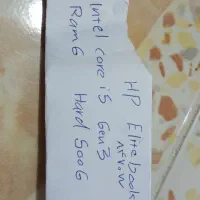 HP Elitebook
Intel core i5 Gen3
Ram6 Hard 500G